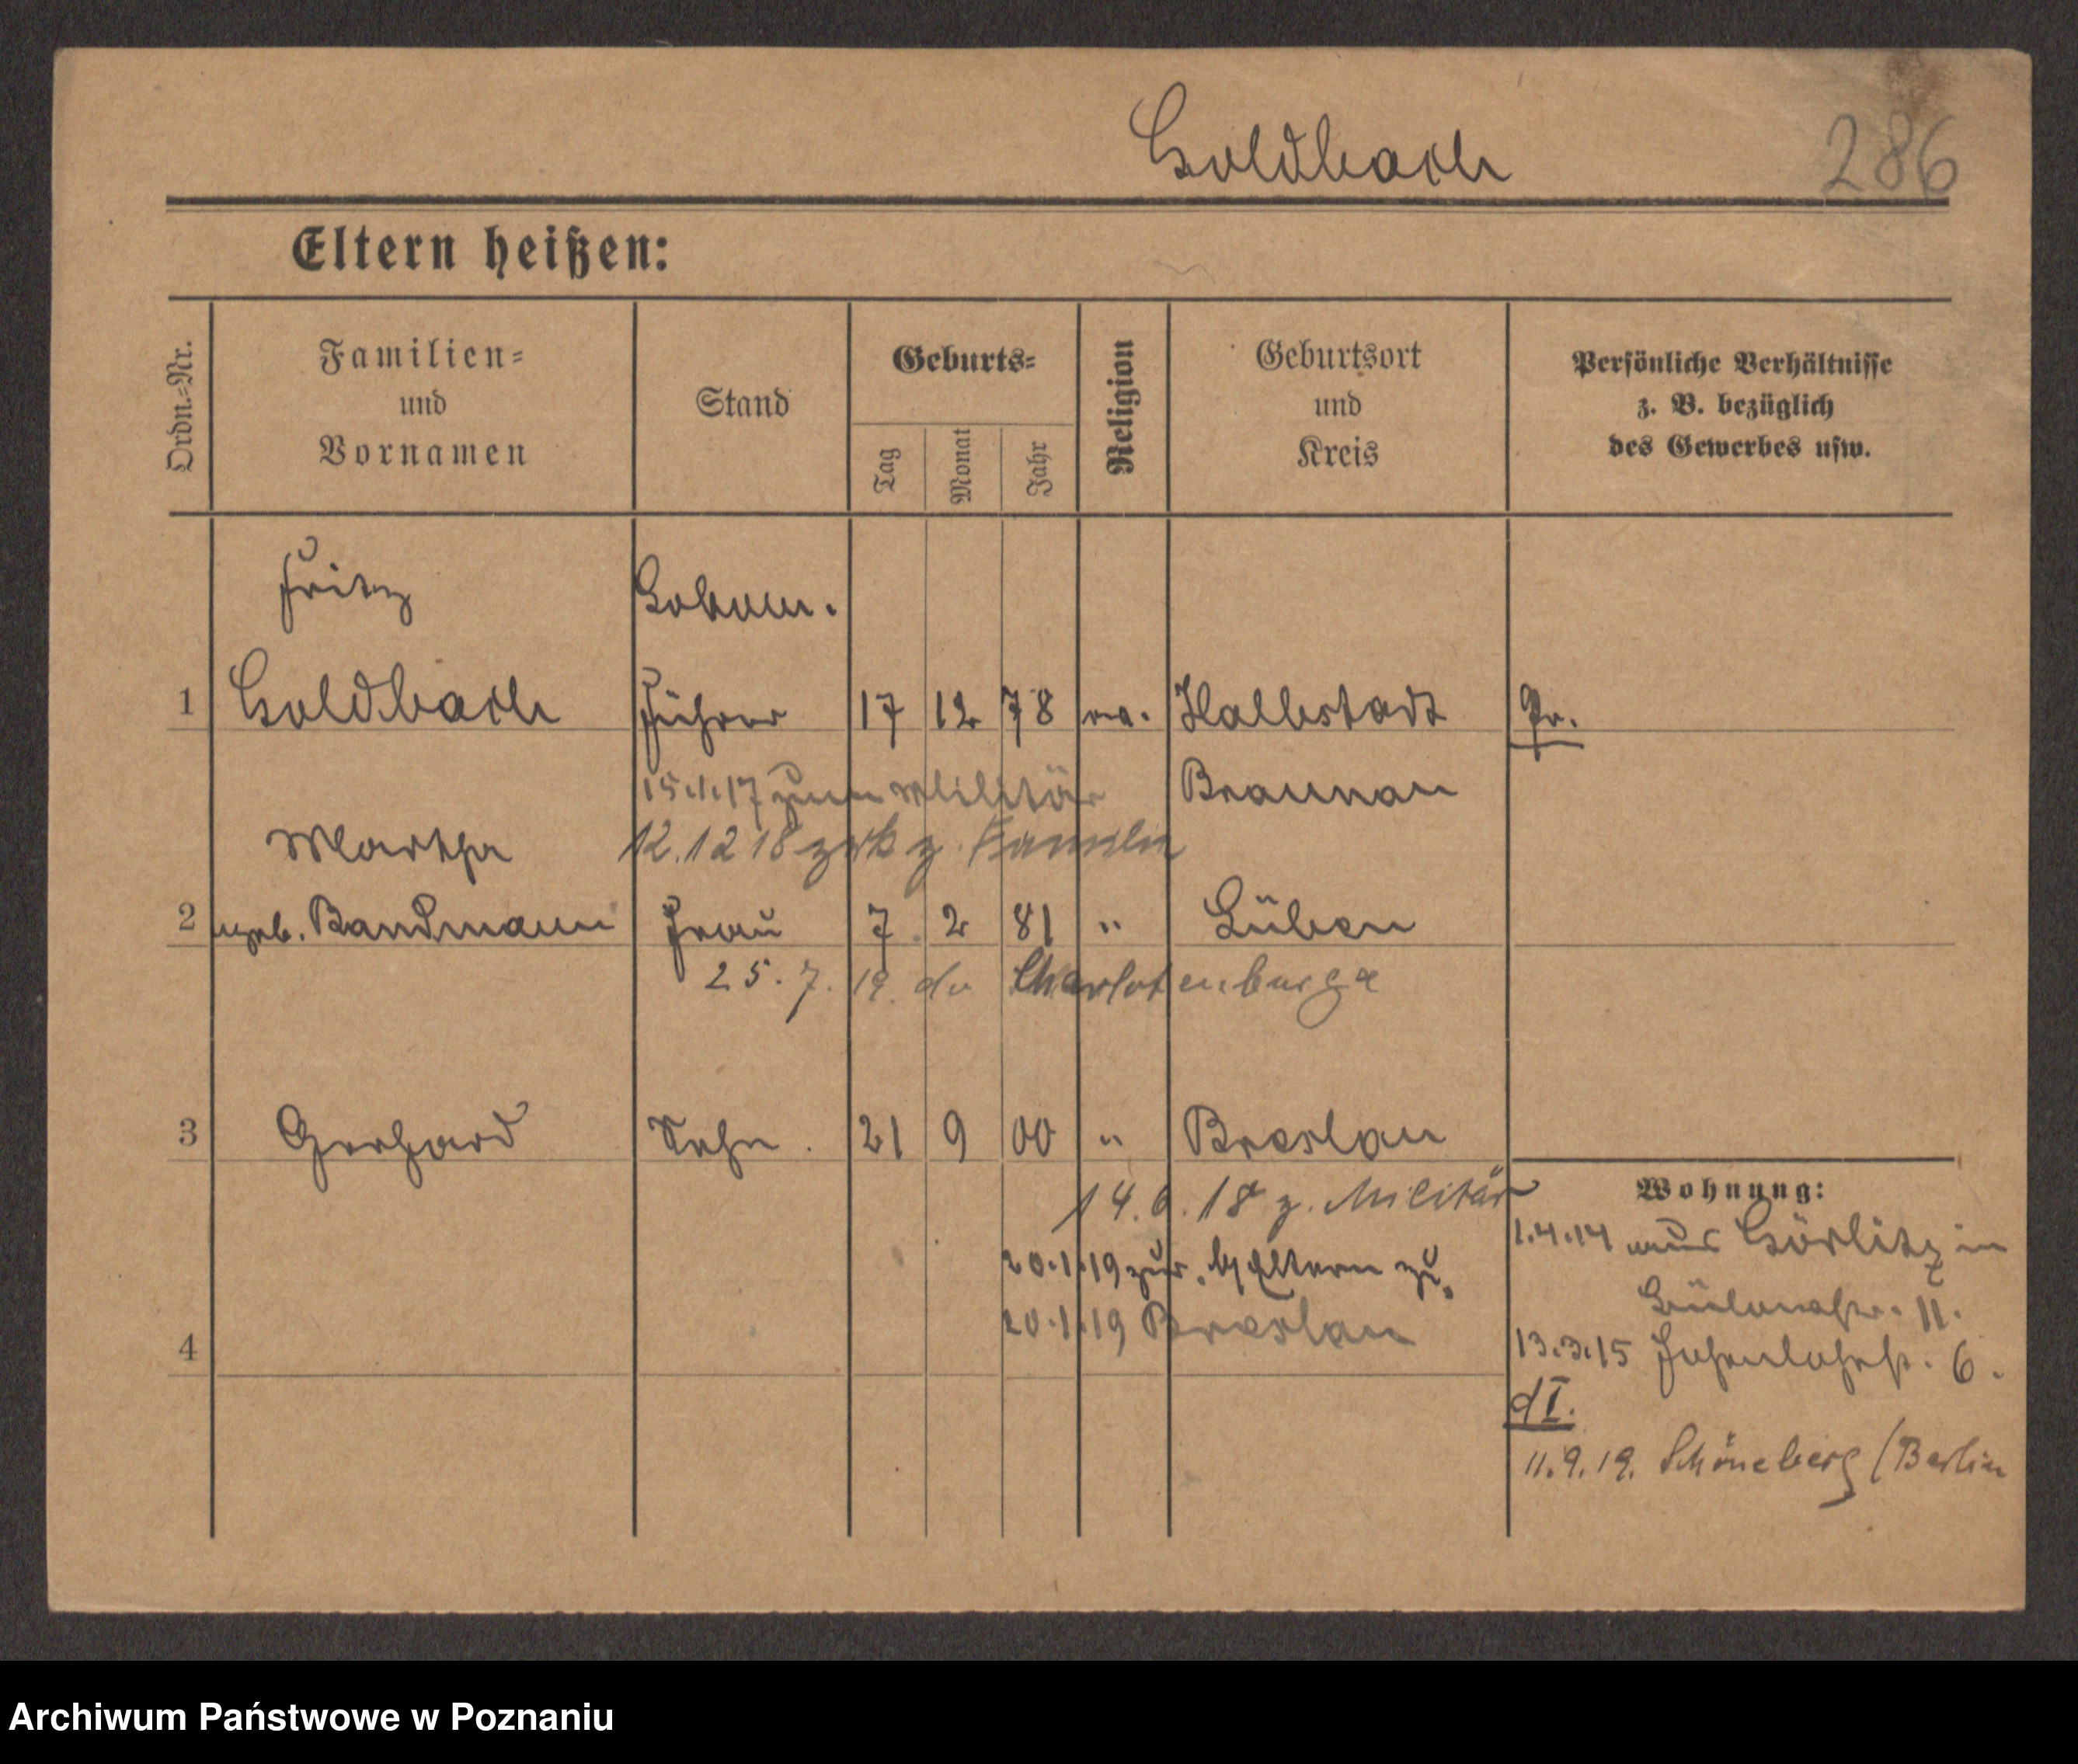 Goldbach 286
Eltern heißen:
Ordn.=Nr.
Familien=
und
Vornamen
Stand
Geburts=
Tag
Monat
Jahr
Religion
Geburtsort
und
Kreis
Persönliche Verhältnisse
z. B. bezüglich
des Gewerbes usw.
Fritz Lokom.
1 Goldbach Führer 17 12 78 ev. Halbstadt Pr.
15.1.17 zum Militär Braunau
Martha 12.12 18 zrk z. Familie
2 geb. Bandmann Frau 7 2 81 " Lüben
25. 7. 19. Charlottenburg
3 Gerhard Sohn. 21 9 00 " Breslau
14.6.18 z. Militär
20.1.19 zur. Eltern zu.
20.1.19 Breslau
4
Wohnung:
1.4.14 aus Görlitz in
11.
13.3.15 6.
dI.
11.9.19. Schöneberg / Berlin
Archiwum Państwowe w Poznaniu